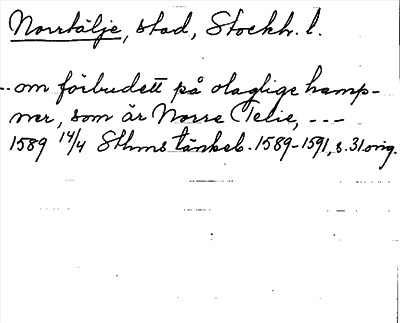 Norrtälje, stad, Stockh. l.
-- om förbudett på olaglige hamp-
ner, som är Norre Telie, ---
1589 14/4 Sthms tänkeb. 1589-1591, s. 31 orig.